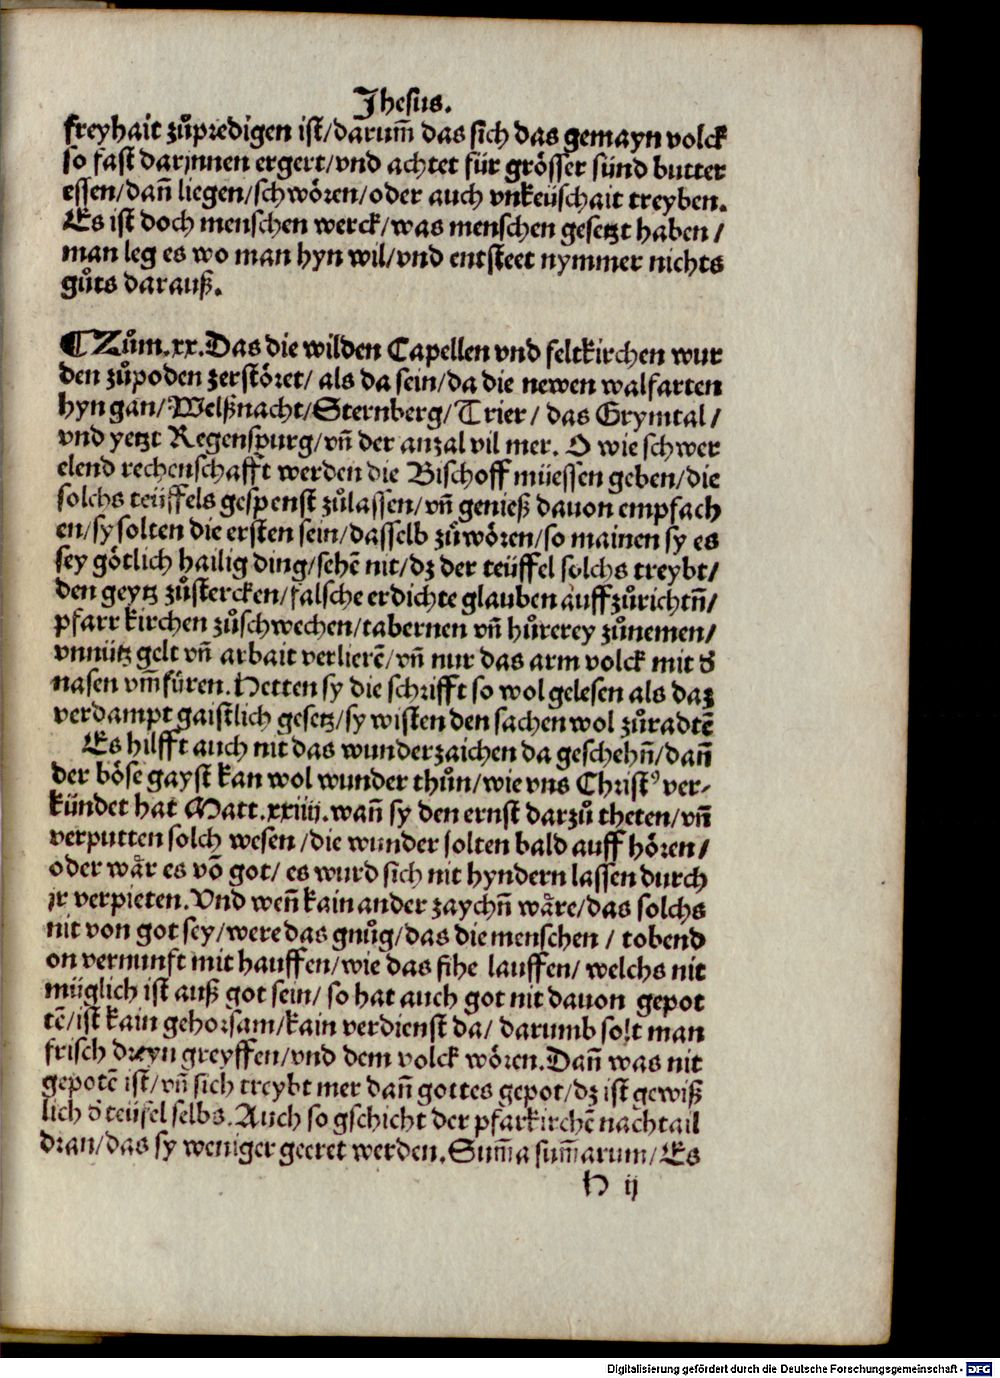 Jhesus.
freyhait zůpredigen ist/darum̄ das sich das gemayn volck
so fast darjnnen ergert/vnd achtet für grösser sünd butter
essen/dañ liegen/schwören/oder auch vnkeüschait treyben.
Es ist doch menschen werck/was menschen gesetzt haben/
man leg es wo man hyn wil/vnd entsteet nymmer nichts
gůts darauß.
¶Zům.xx.Das die wilden Capellen vnd feltkirchen wur
den zůpoden zerstöret/ als da sein/da die newen walfarten
hyn gan/Welßnacht/Sternberg/Trier/ das Grymtal/
vnd yetzt Regenspurg/vñ der anzal vil mer. O wie schwer
elend rechenschafft werden die Bischoff müessen geben/die
solchs teüffels gespenst zůlassen/vñ genieß dauon empfach
en/sy solten die ersten sein/dasselb zůwören/so mainen sy es
sey götlich hailig ding/sehē nit/dz der teüffel solchs treybt/
den geytz zůstercken/falsche erdichte glauben auffzůrichtñ/
pfarrkirchen zůschwechen/tabernen vñ hůrerey zůnemen/
vnnütz gelt vñ arbait verlierē/vñ nur das arm volck mit d̄
nasen vm̄füren.Hetten sy die schrifft so wol gelesen als daz
verdampt gaistlich gesetz/sy wisten den sachen wol zůradtē
Es hilfft auch nit das wunderzaichen da geschehñ/dañ
der böse gayst kan wol wunder thůn/wie vns Christ⁹ ver-
kündet hat Matt.xxiiij.wañ sy den ernst darzů theten/vñ
verputten solch wesen/die wunder solten bald auff hören/
oder wår es võ got/ es wurd sich nit hyndern lassen durch
jr verpieten.Vnd weñ kain ander zaychñ wåre/das solchs
nit von got sey/were das gnůg/das die menschen/ tobend
on vernunft mit hauffen/wie das fihe lauffen/ welchs nit
müglich ist auß got sein/ so hat auch got nit dauon gepot
tē/ist kain gehorsam/kain verdienst da/ darumb solt man
frisch dreyn greyffen/vnd dem volck wören.Dañ was nit
gepotē ist/vñ sich treybt mer dañ gottes gepot/dz ist gewiß
lich d̄ teüfel selbs.Auch so gschicht der pfarkirchē nachtail
dran/das sy weniger geeret werden.Sum̄a sum̄arum/Es
H ij
Digitalisierung gefördert durch die Deutsche Forschungsgemeinschaft - DFG